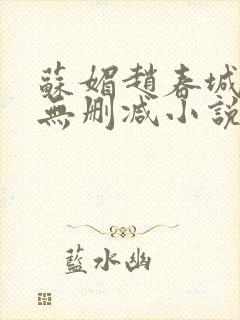 蘇媚趙春城
無删减小說
藍水幽